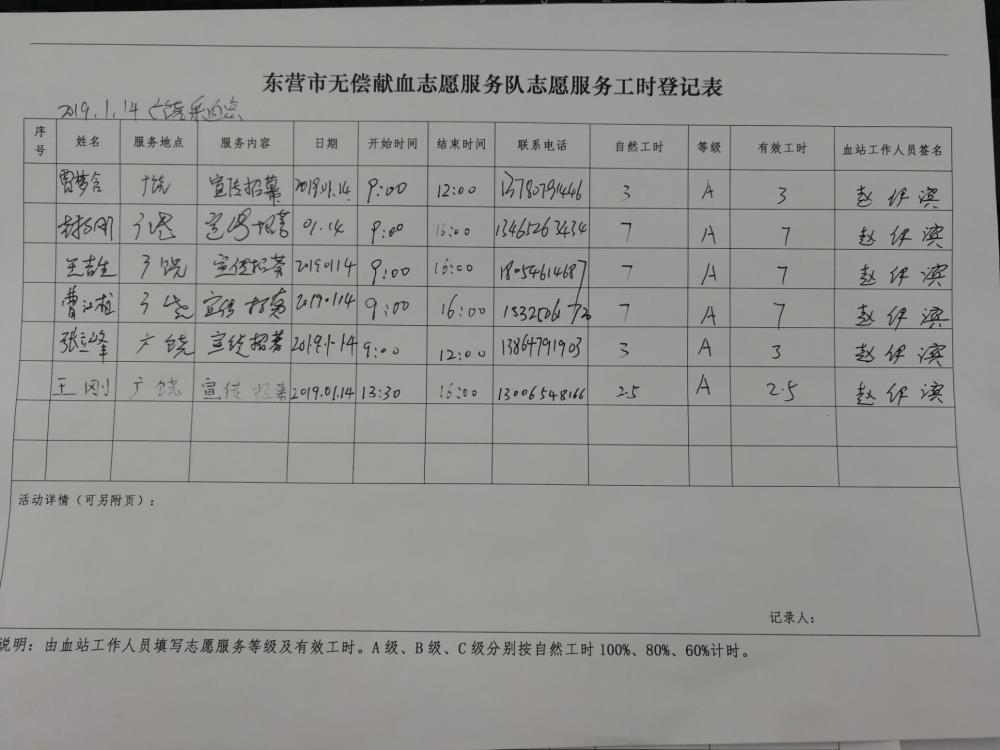 东营市无偿献血志愿服务队志愿服务工时登记表
2019.1.14 广饶采血点
序号 姓名 服务地点 服务内容 日期 开始时间 结束时间 联系电话 自然工时 等级 有效工时 血站工作人员签名
广饶 宣传招募 2019.01.14 9:00 12:00 13780791446 3 A 3
广饶 宣传招募 01.14 9:00 16:00 13465263434 7 A 7
广饶 宣传招募 20190114 9:00 16:00 18054614687 7 A 7
广饶 宣传招募 20190114 9:00 16:00 7 A 7
张立峰 广饶 宣传招募 2019.1.14 9:00 12:00 13864791903 3 A 3
王刚 广饶 宣传招募 2019.01.14 13:30 16:00 13006548166 2.5 A 2.5
活动详情（可另附页）：
记录人：
说明：由血站工作人员填写志愿服务等级及有效工时。A级、B级、C级分别按自然工时100%、80%、60%计时。